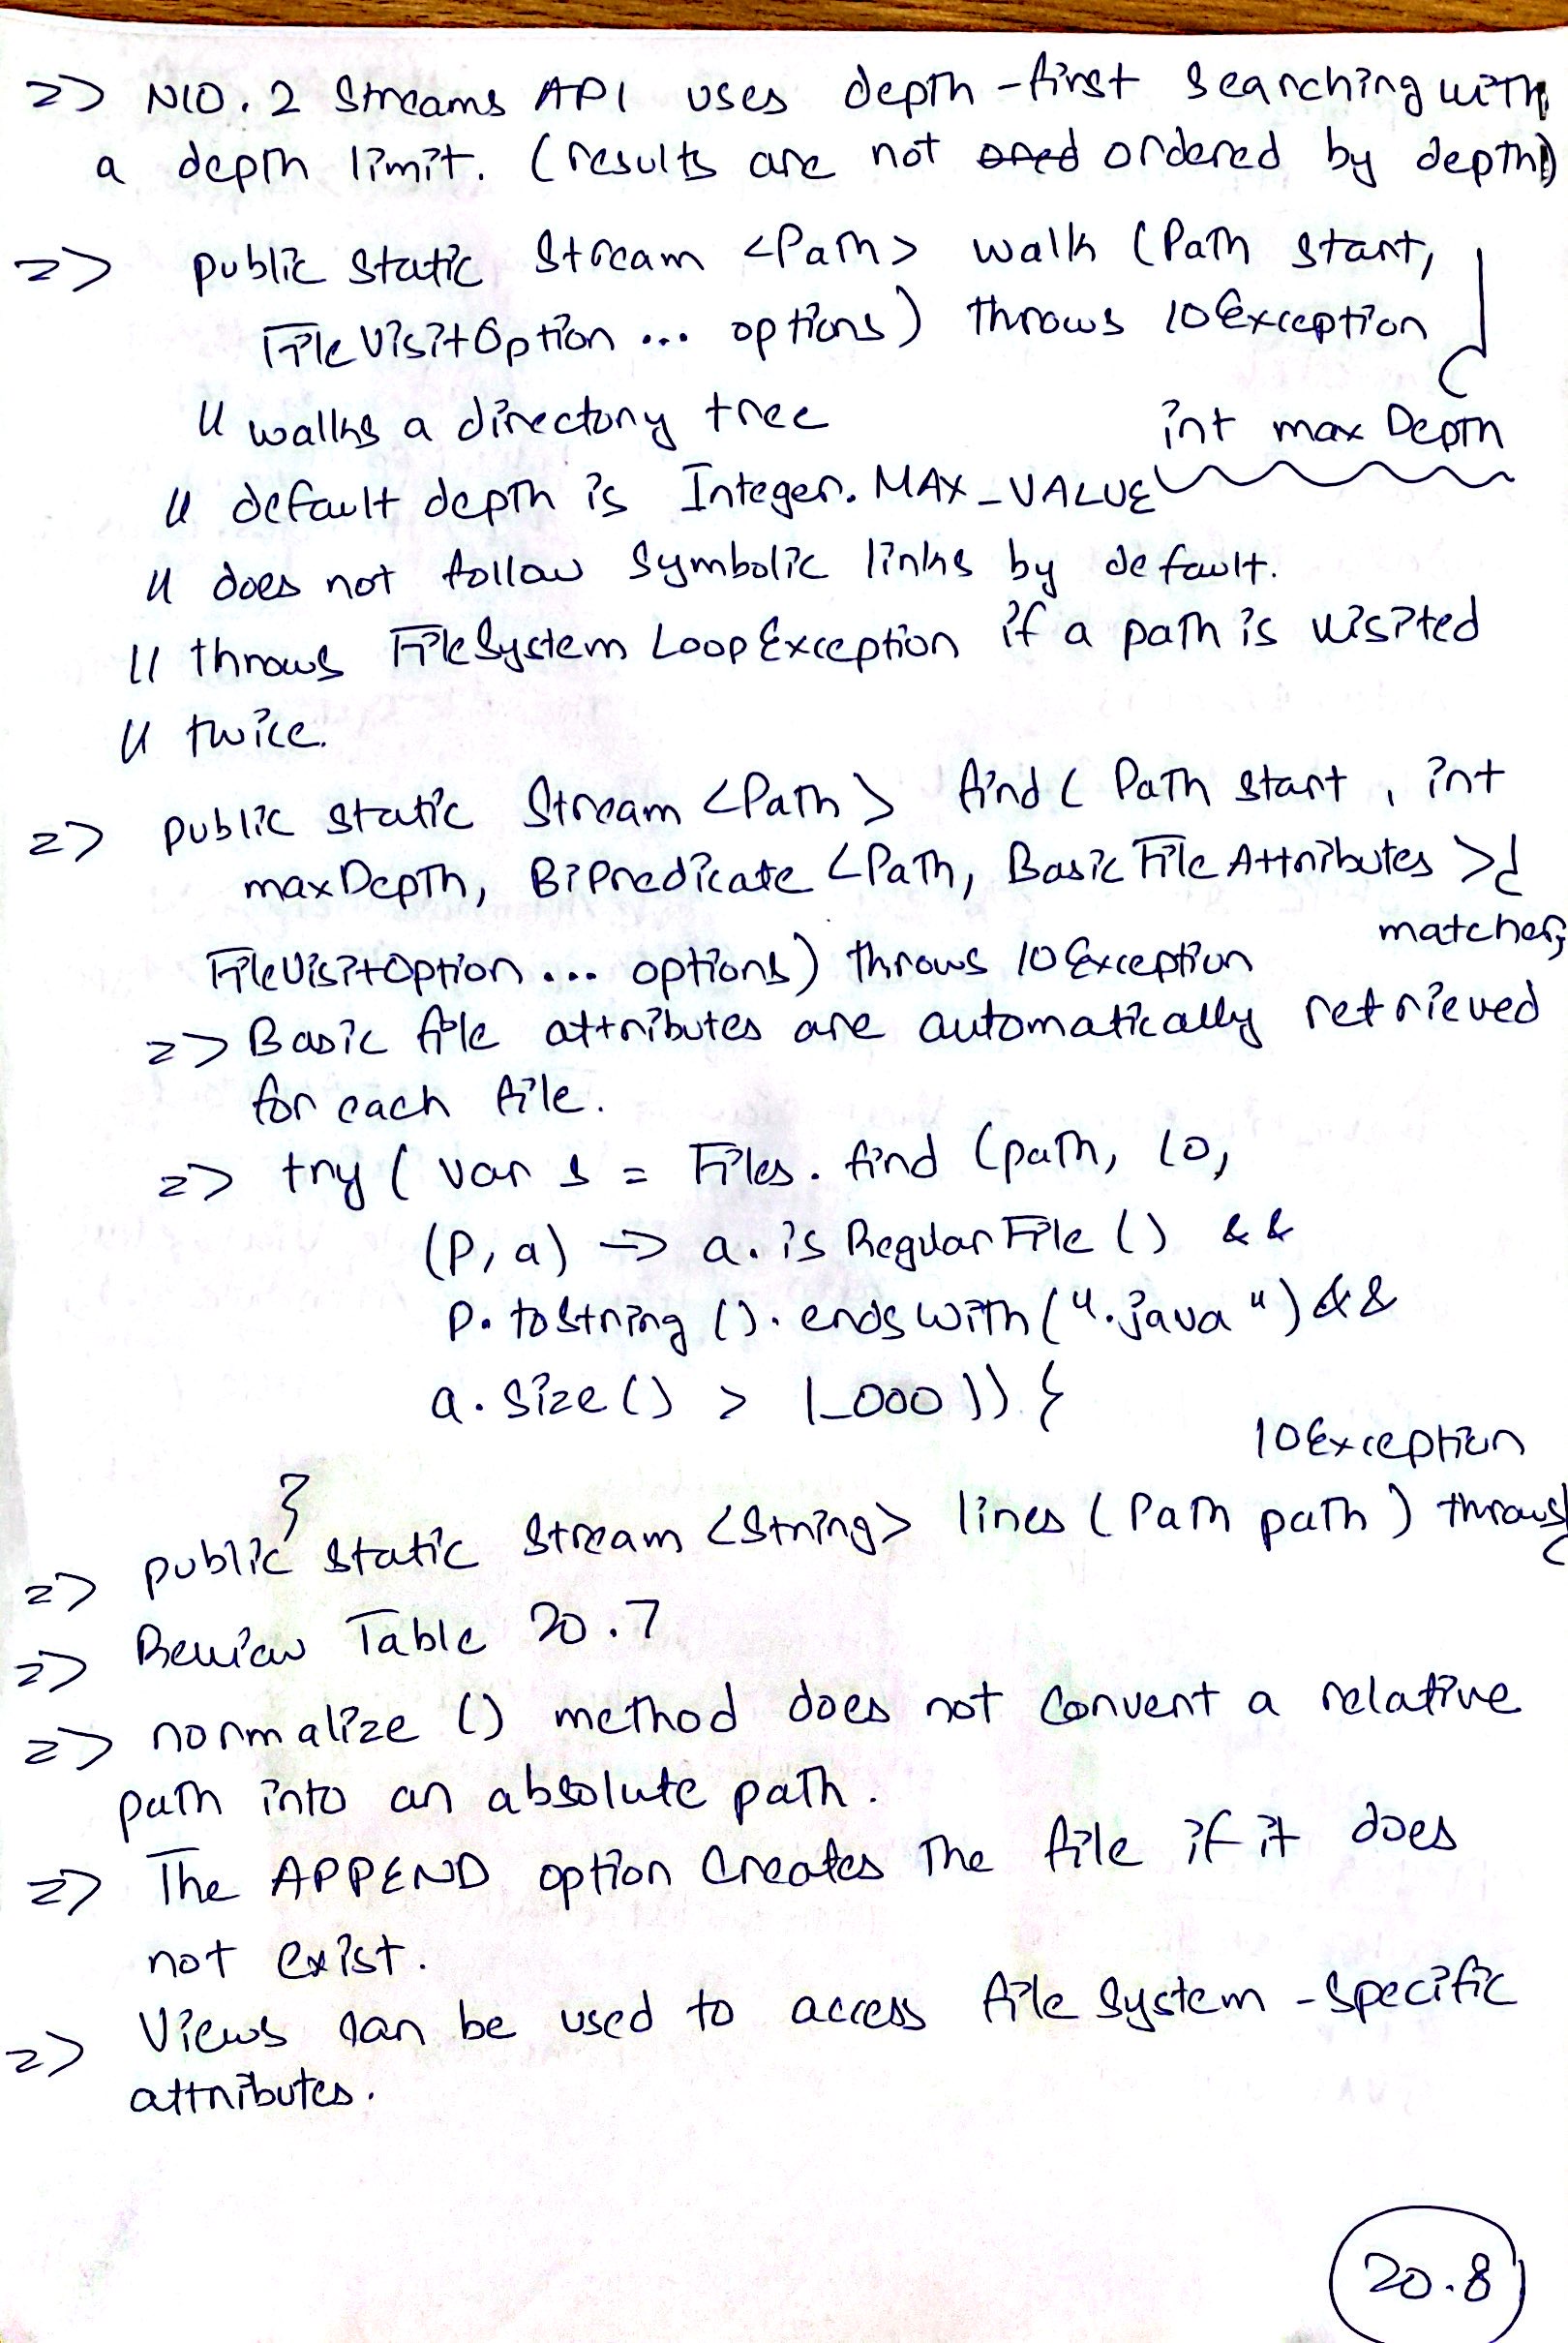 => NIO.2 Streams API uses depth-first searching with
a depth limit. (results are not ordered by depth)
=> public static Stream <Path> walk (Path start,
FileVisitOption ... options) throws IOException
int maxDepth
// walks a directory tree
// default depth is Integer.MAX_VALUE
// does not follow symbolic links by default.
// throws FileSystemLoopException if a path is visited
// twice.
=> public static Stream <Path> find ( Path start, int
maxDepth, BiPredicate <Path, BasicFileAttributes >
matcher,
FileVisitOption ... options) throws IOException
=> Basic file attributes are automatically retrieved
for each file.
=> try ( var s = Files.find (path, 10,
(p, a) -> a.isRegularFile () &&
p.toString ().endsWith (".java") &&
a.size () > 1_000 )) {
}
IOException
=> public static Stream <String> lines ( Path path ) throws
=> Review Table 20.7
=> normalize () method does not convert a relative
path into an absolute path.
=> The APPEND option creates the file if it does
not exist.
=> Views can be used to access file system-specific
attributes.
20.8